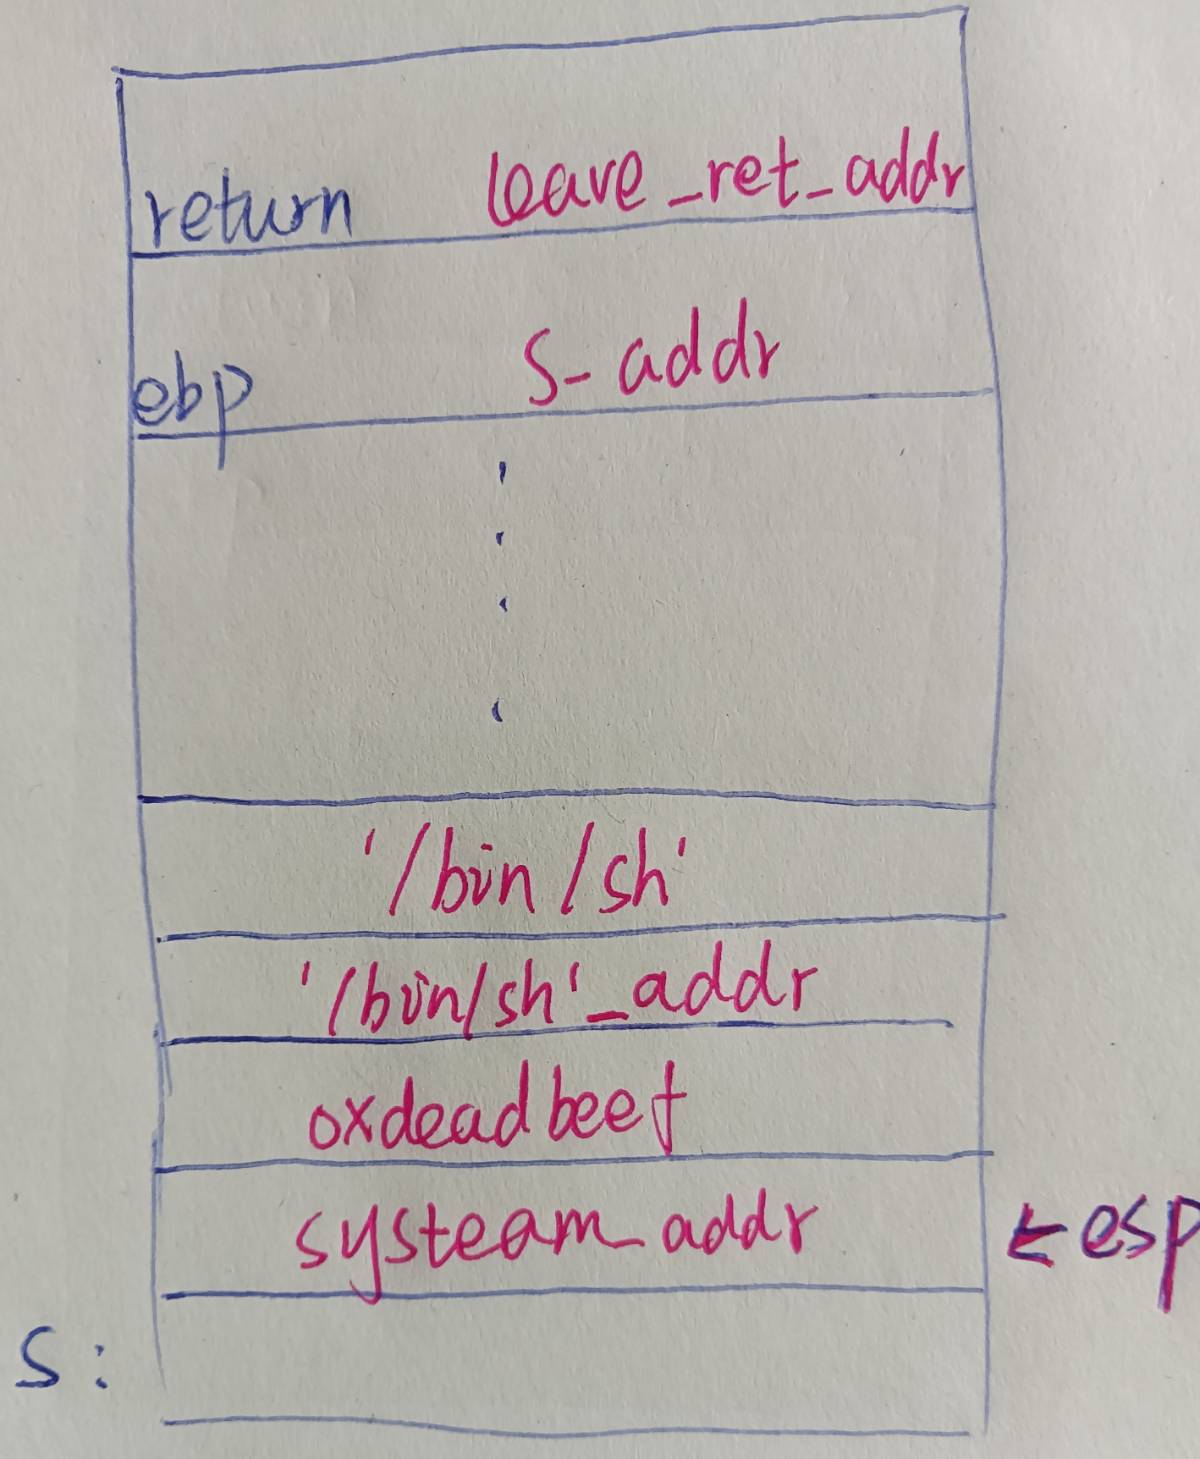 return leave_ret_addr
ebp S-addr
'/bin/sh'
'/bin/sh'_addr
oxdeadbeef
systeam_addr ←esp
S: